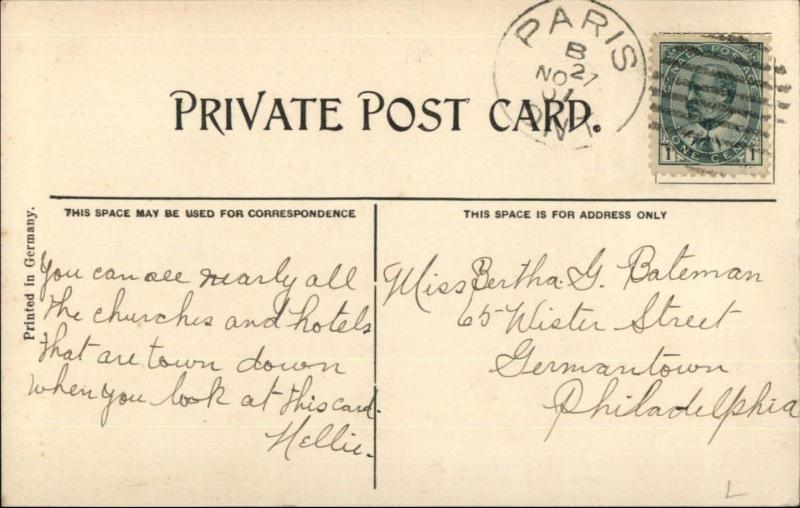 PARIS
B
27
NO
ONT
CANADA POSTAGE
1 1
ONE CENT
PRIVATE POST CARD.
THIS SPACE MAY BE USED FOR CORRESPONDENCE
THIS SPACE IS FOR ADDRESS ONLY
Printed in Germany.
You can see nearly all
the churches and hotels
that are town down
when you look at this card.
Nellie.
Miss Bertha. G. Bateman
65 Wister Street
Germantown
Philadelphia
L